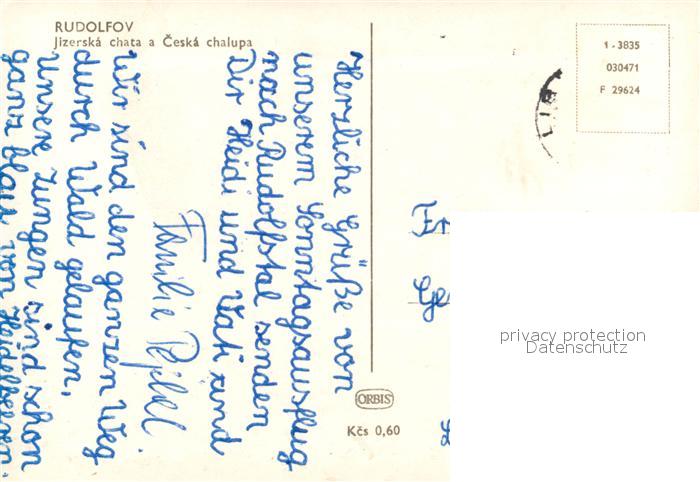 RUDOLFOV
Jizerská chata a Česká chalupa
1 - 3835
030471
F 29624
Herzliche Grüße von
unserem Sonntagsausflug
nach Rudolfstal senden
Dir Heidi und Vati und
Familie
Wir sind den ganzen Weg
durch Wald gelaufen,
unsere Zungen sind schon
ganz blau von Heidelbeeren.
ORBIS
Kčs 0,60
privacy protection
Datenschutz